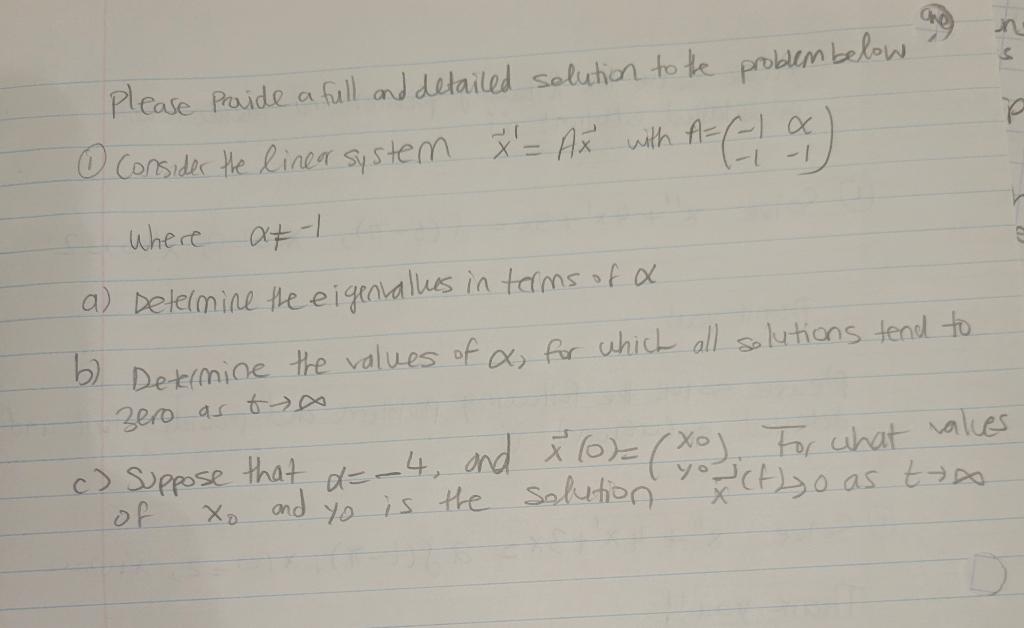 Please Praide a full and detailed solution to the problem below
① Consider the linear system x⃗' = Ax⃗ with A = (-1 α
-1 -1)
where α ≠ -1
a) Determine the eigenvalues in terms of α
b) Determine the values of α, for which all solutions tend to
zero as t→∞
c) Suppose that α = -4, and x⃗(0) = (x0
y0). For what values
of x0 and y0 is the solution x⃗(t)→0 as t→∞